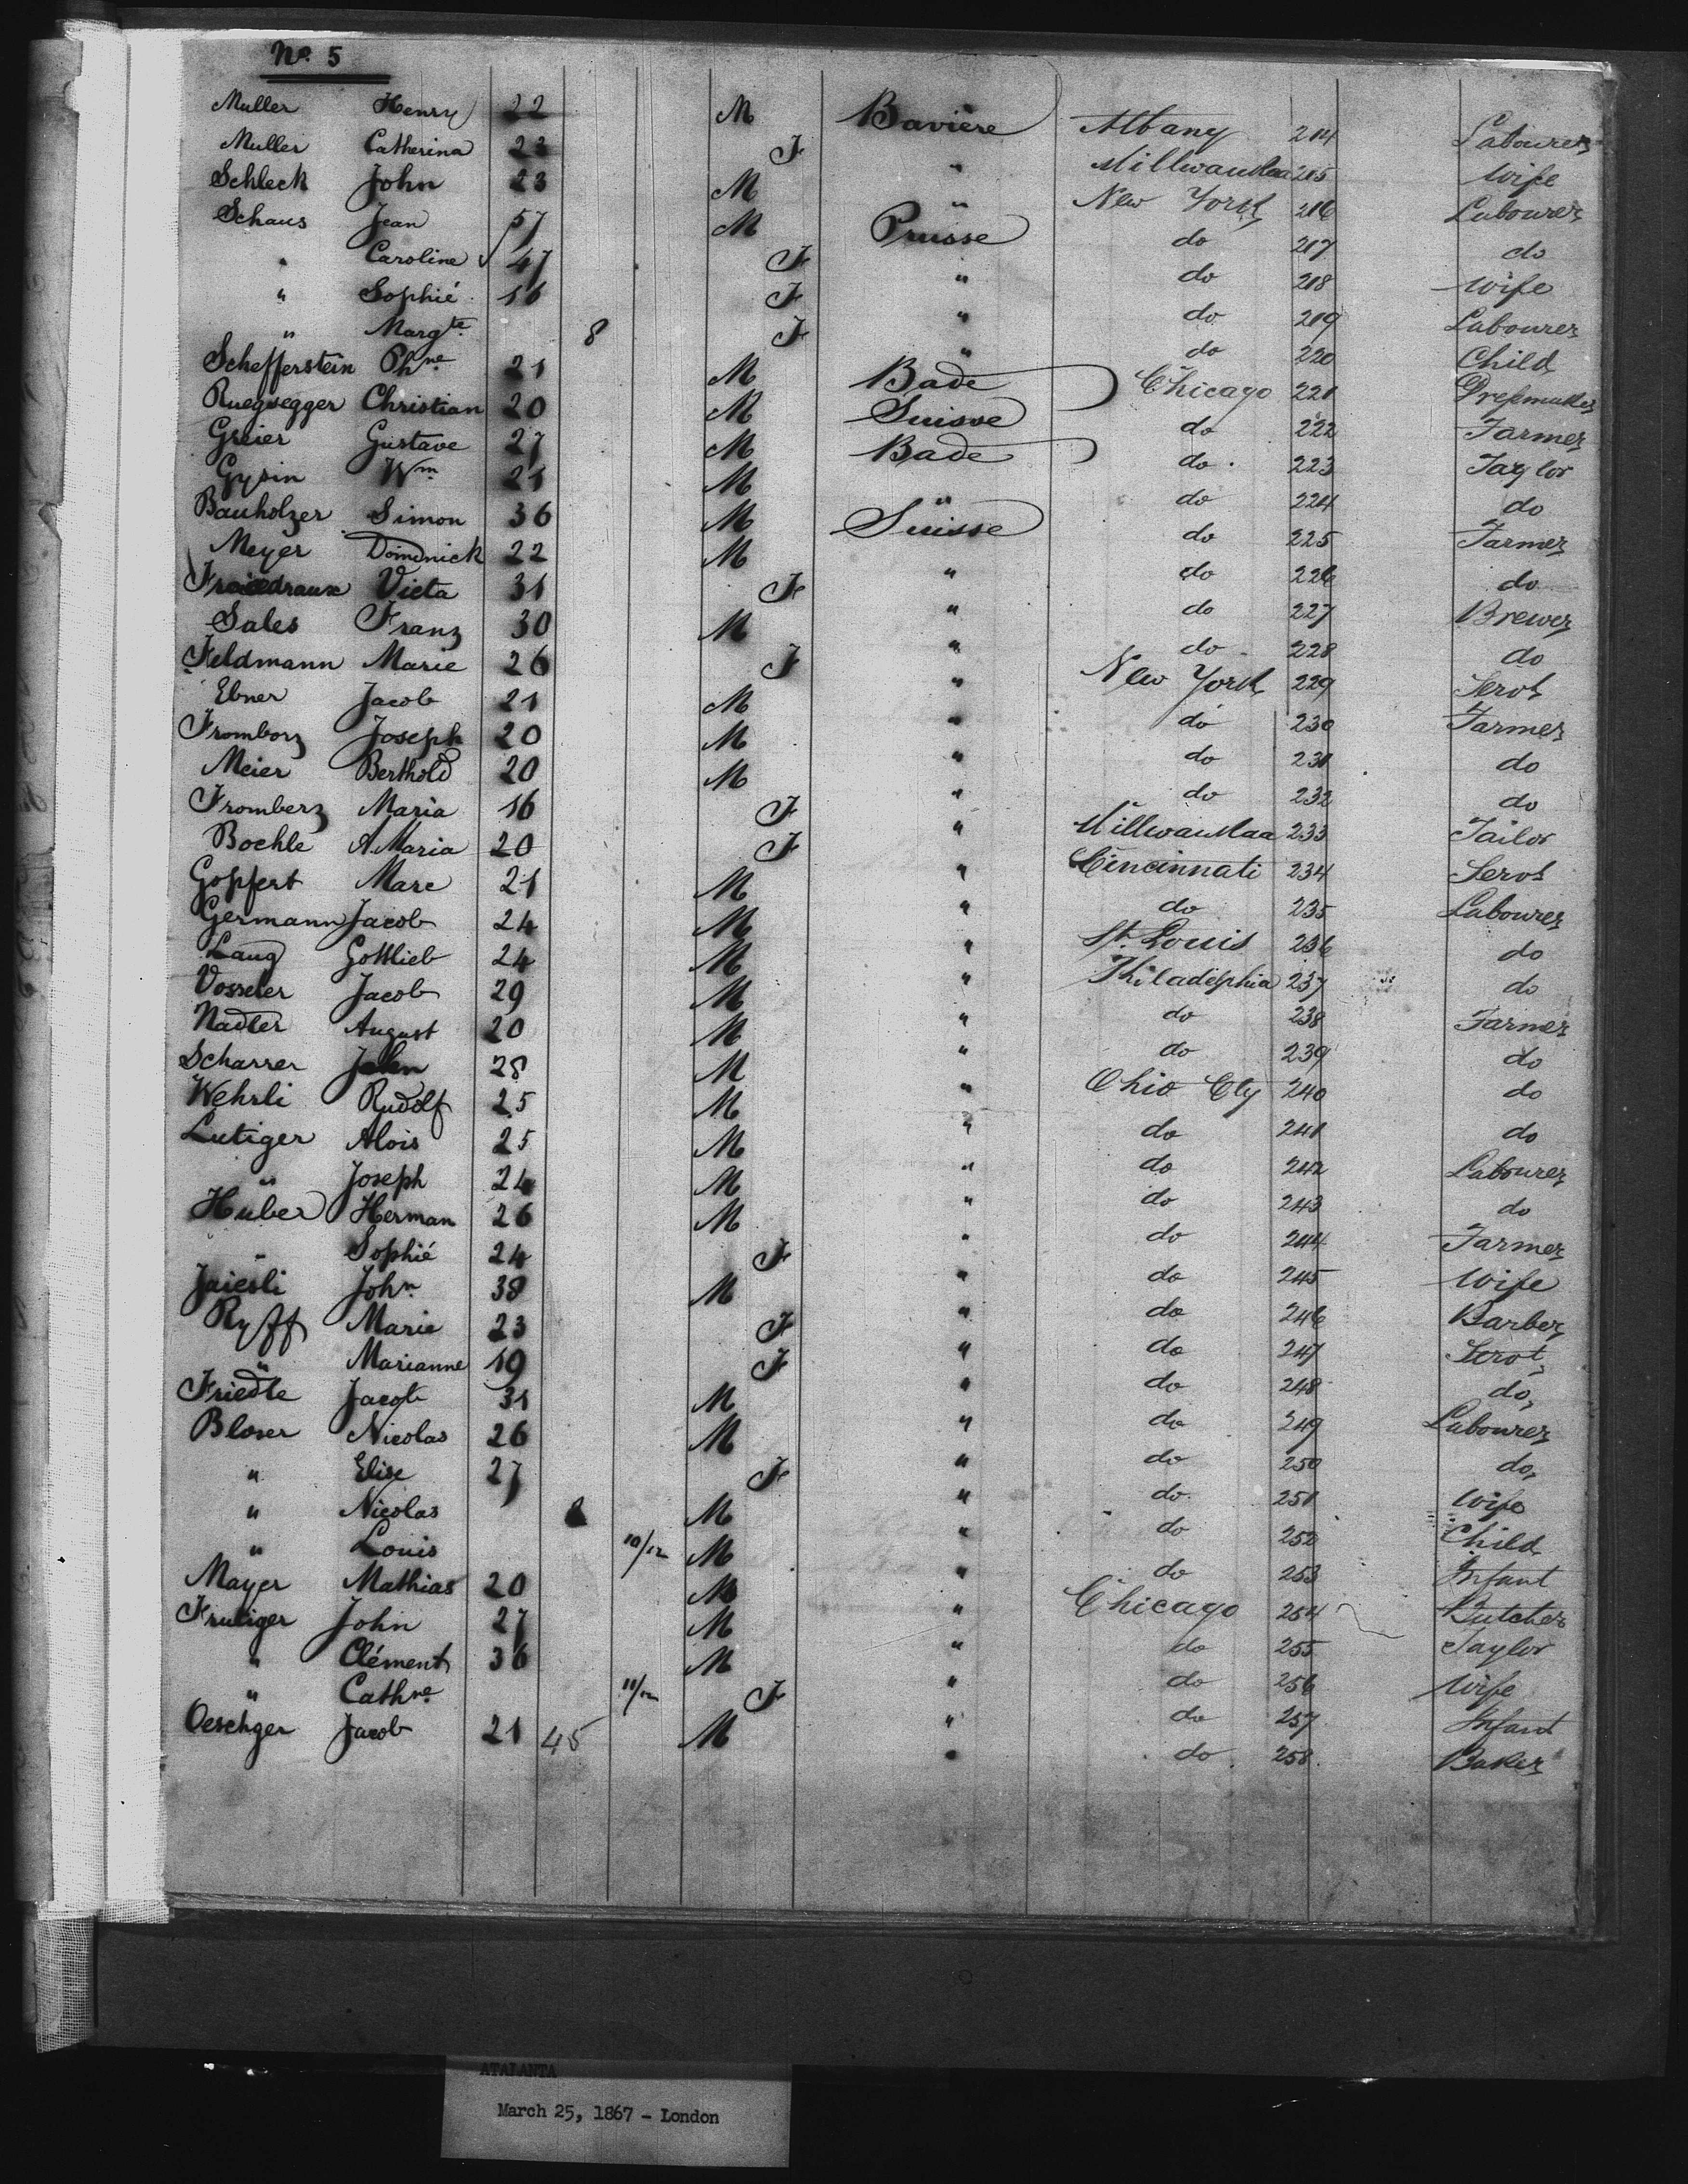 No. 5
Muller Henry 22 M Bavière Albany 214 Labourer
Muller Catherina 22 F " Millwaukaa 215 Wife
Schleck John 23 M " New York 216 Labourer
Schaus Jean 57 M Prusse do 217 do
" Caroline 47 F " do 218 Wife
" Sophié 16 F " do 219 Labourer
" Margte 8 F " do 220 Child
Schefferstein Phne 21 M Bade Chicago 221 Dressmaker
Ruegsegger Christian 20 M Suisse do 222 Farmer
Greier Gustave 27 M Bade do 223 Taylor
Gysin Wm 21 M " do 224 do
Bauholzer Simon 36 M Suisse do 225 Farmer
Meyer Dominick 22 M " do 226 do
Victa 31 F " do 227 Brewer
Sales Franz 30 M " do 228 do
Feldmann Marie 26 F " New York 229 Servt
Ebner Jacob 21 M " do 230 Farmer
Fromberz Joseph 20 M " do 231 do
Meier Berthold 20 M " do 232 do
Fromberz Maria 16 F " Millwaukaa 233 Tailor
Boehle A. Maria 20 F " Cincinnati 234 Servt
Gopfert Marc 21 M " do 235 Labourer
Germann Jacob 24 M " St. Louis 236 do
Laug Gottlieb 24 M " Philadelphia 237 do
Vosseler Jacob 29 M " do 238 Farmer
Nadler August 20 M " do 239 do
Scharrer John 28 M " Ohio Cty 240 do
Wehrli Rudolf 25 M " do 241 do
Lutiger Alois 25 M " do 242 Labourer
" Joseph 24 M " do 243 do
Huber Herman 26 M " do 244 Farmer
" Sophié 24 F " do 245 Wife
Jaiesli John 38 M " do 246 Barber
Ryff Marie 23 F " do 247 Servt
" Marianne 19 F " do 248 do
Friedle Jacob 31 M " do 249 Labourer
Bloser Nicolas 26 M " do 250 do
" Elise 27 F " do 251 Wife
" Nicolas M " do 252 Child
" Louis 10/12 M " do 253 Infant
Mayer Mathias 20 M " Chicago 254 Butcher
Frutiger John 27 M " do 255 Taylor
" Clément 36 M " do 256 Wife
" Cathne 11/12 F " do 257 Infant
Oeschger Jacob 21 45 M " do 258 Baker
ATALANTA
March 25, 1867 - London